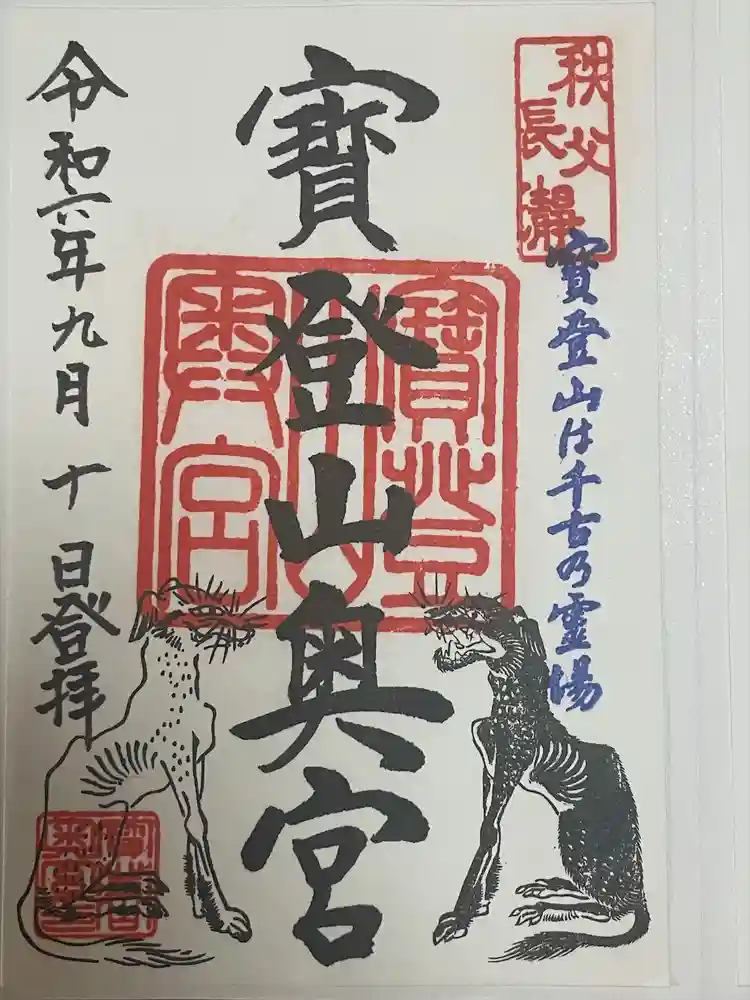 秩父
長瀞
寳登山は千古乃霊場
寳登山奥宮
寳登
山
奥宮
令和六年九月十日登拝